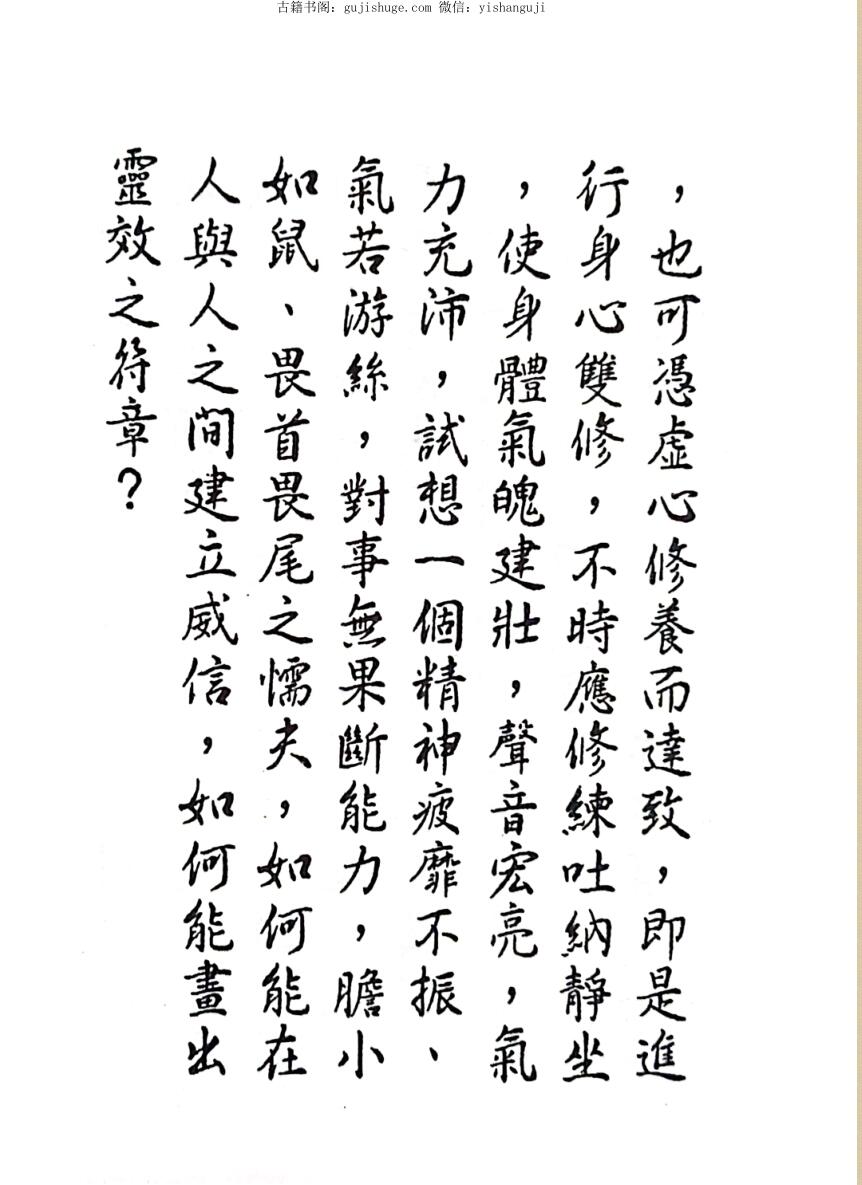 古籍书阁：gujishuge.com 微信：yishanguji
，也可憑虛心修養而達致，即是進
行身心雙修，不時應修練吐納靜坐
，使身體氣魄建壯，聲音宏亮，氣
力充沛，試想一個精神疲靡不振、
氣若游絲，對事無果斷能力，膽小
如鼠、畏首畏尾之懦夫，如何能在
人與人之間建立威信，如何能畫出
靈效之符章？